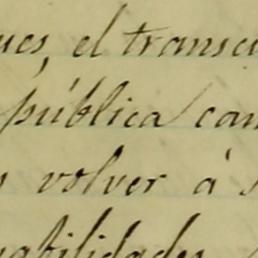 ues, el transcu
pública cam
volver á
abilidades